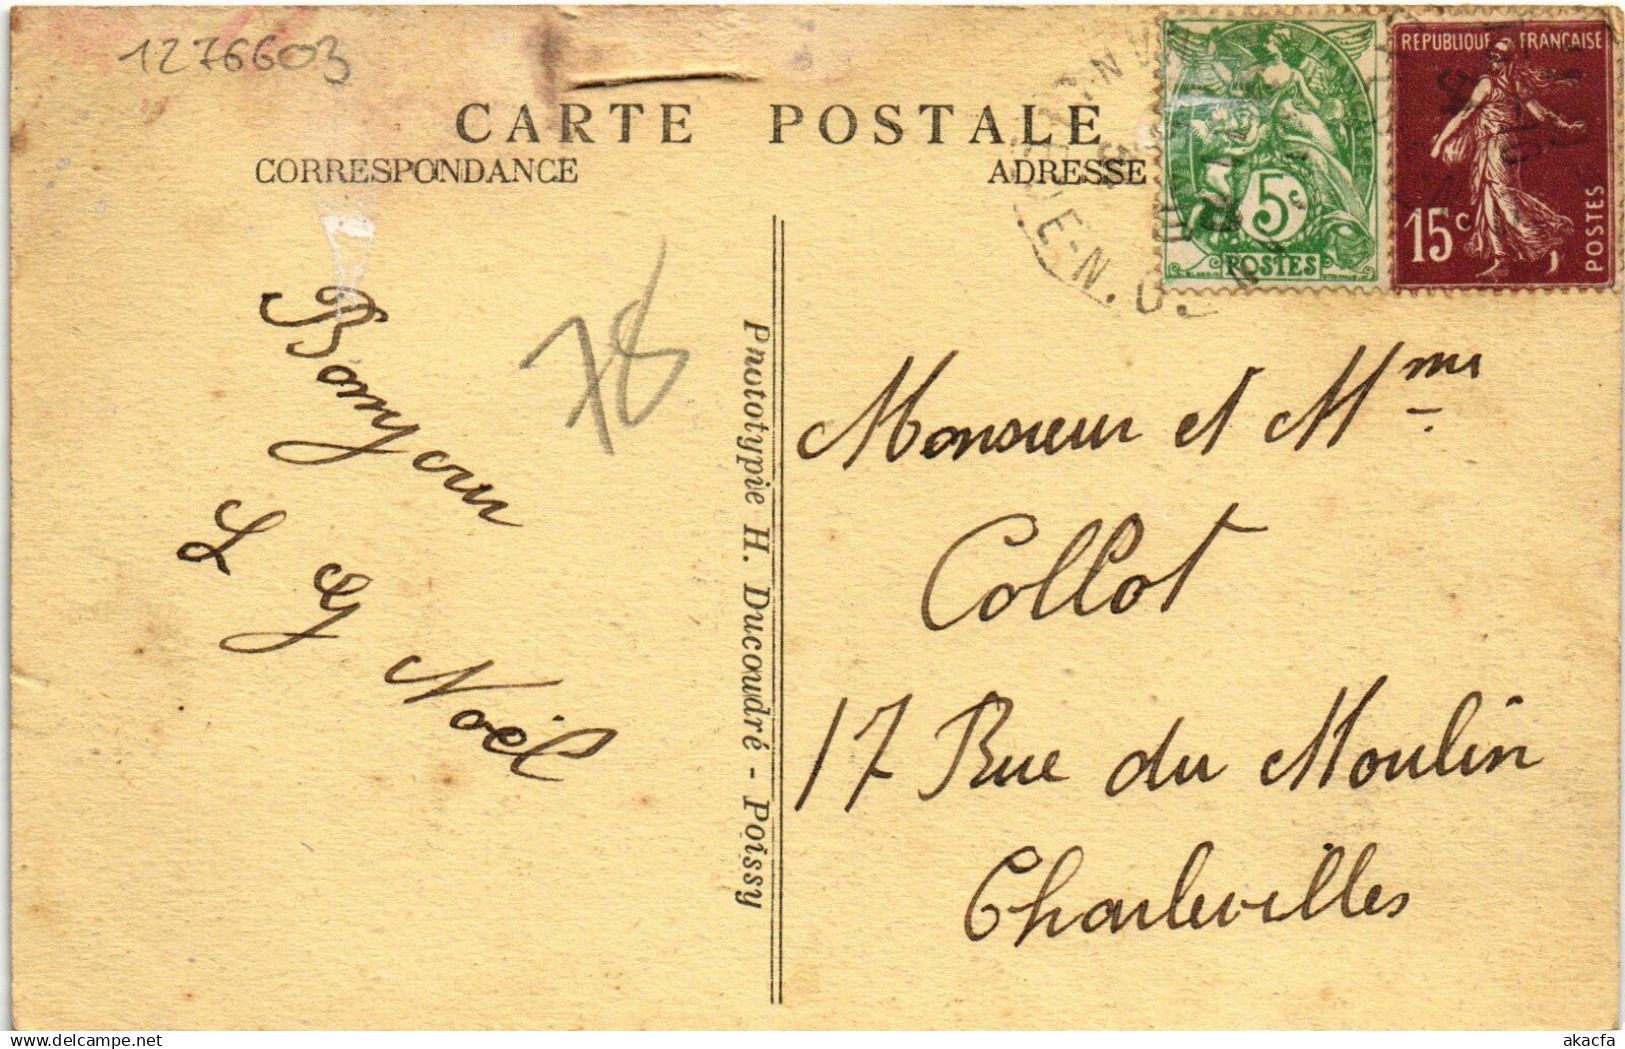 1276603
CARTE POSTALE
CORRESPONDANCE
ADRESSE
5c
POSTES
REPUBLIQUE FRANÇAISE
15c
POSTES
78
Bonjour
L G Noël
Phototypie H. Ducoudré - Poissy
Monsieur et Mme
Collot
17 Rue du Moulin
Charlevilles
akacfa